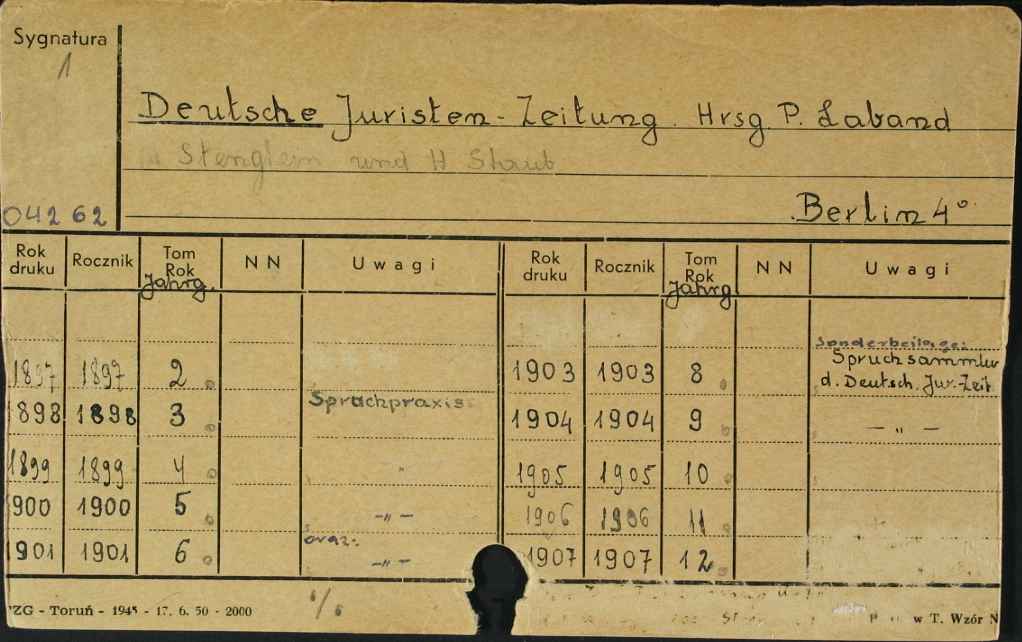 Sygnatura
1
Deutsche Juristen-Zeitung. Hrsg. P. Laband
Stenglein und H Staub
042 62
Berlin 4°
Rok druku Rocznik Tom Rok Jahrg. NN Uwagi Rok druku Rocznik Tom Rok Jahrg NN Uwagi
Sonderbeilage:
1897 1897 2 1903 1903 8 Spruchsammlu
d. Deutsch. Jur.-Zeit
1898 1898 3 Spruchpraxis 1904 1904 9 — " —
1899 1899 4 " 1905 1905 10
1900 1900 5 — " — 1906 1906 11
oraz:
1901 1901 6 — " — 1907 1907 12
PZG - Toruń - 1945 - 17. 6. 50 - 2000
w T. Wzór N